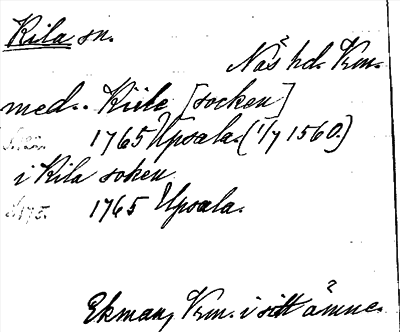 Kila sn.
Näs hd. Vrm.
med.. Kiile [socken]
1765 Upsala. (1/7 1560.)
i Kila soken
1765 Upsala.
Ekman, Vrm. i sitt ämne.